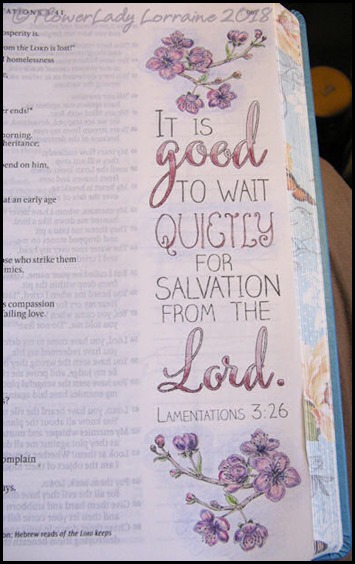 © FlowerLady Lorraine 2018
TATIONS 3:41
osperity is.
from the LORD is lost!"
d homelessness
er ends!"
morning.
heritance;
pend on him,
at an early age
ose who strike them
mies.
s compassion
failing love.
s?
omplain
ys.
tion: Hebrew reads of the LORD keeps
IT IS
good
TO WAIT
QUIETLY
FOR
SALVATION
FROM THE
Lord.
LAMENTATIONS 3:26